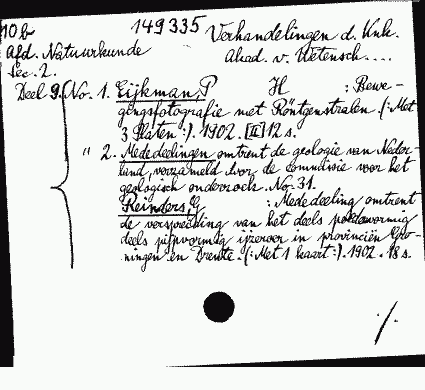 10b 149335 Verhandelingen d. Knk.
Afd. Natuurkunde Akad. v. Wetensch....
Sec. 2.
Deel 9. No. 1. Eijkman, P H : Bewe-
gingsfotografie met Röntgenstralen (: Met
3 Platen :). 1902. [II] 12 s.
" 2. Mededeelingen omtrent de geologie van Neder-
land, verzameld door de commissie voor het
geologisch onderzoek. No. 31.
Reinders, G : Mededeeling omtrent
de verspreiding van het deels poedervormig
deels pijpvormig ijzeroer in provinciën Gro-
ningen en Drente. (: Met 1 kaart :). 1902. 18 s.